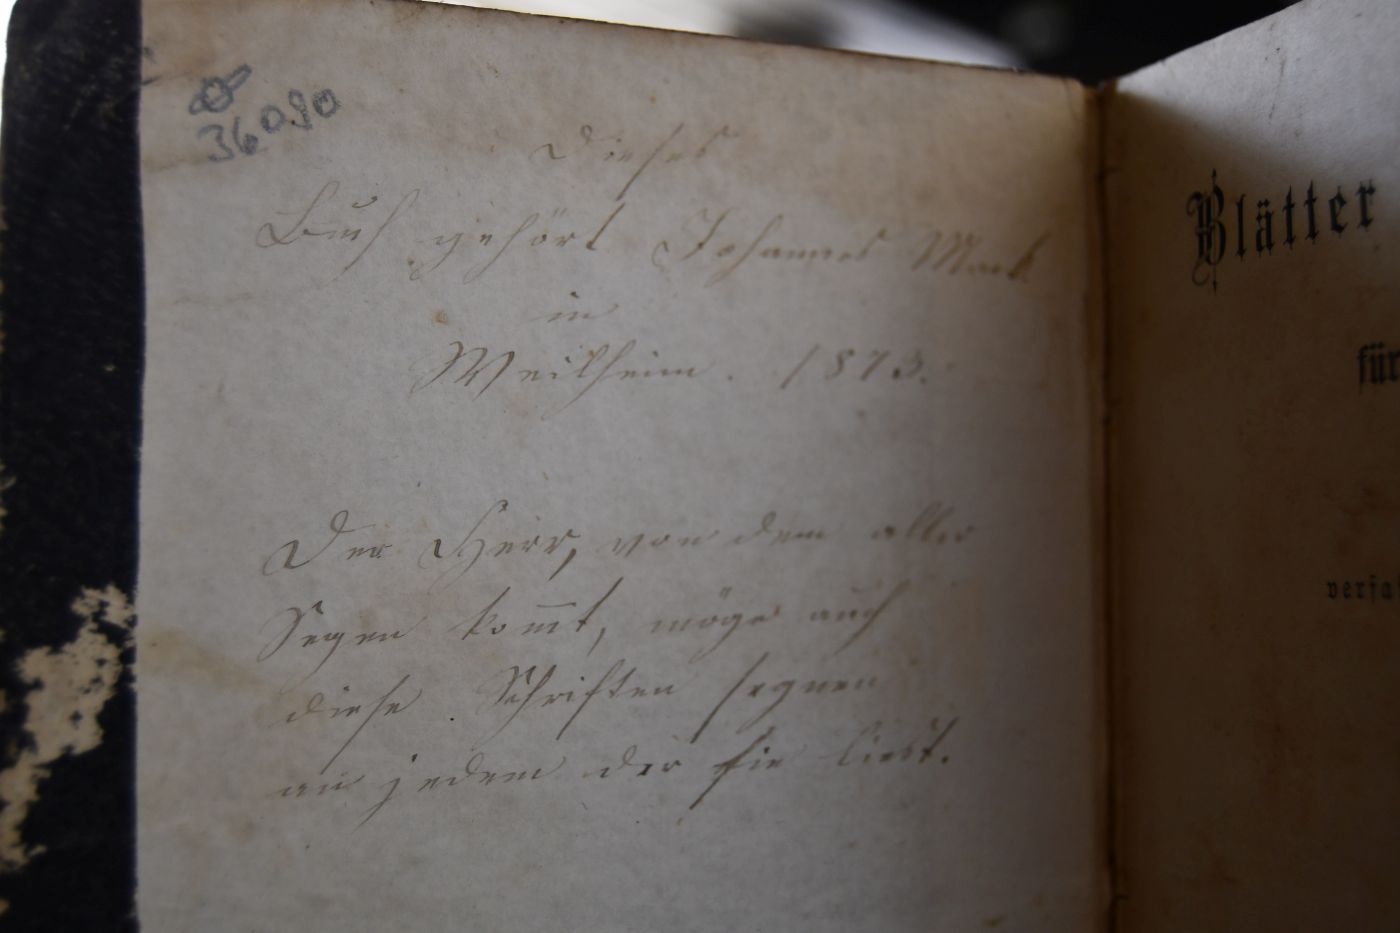 36090
Dieses
Buch gehört Johannes Mack
in
Weilheim. 1873.
Der Herr, von dem aller
Segen kom̅t, möge auch
diese Schriften segnen
an jedem der sie liest.
Blätter
für
verfa